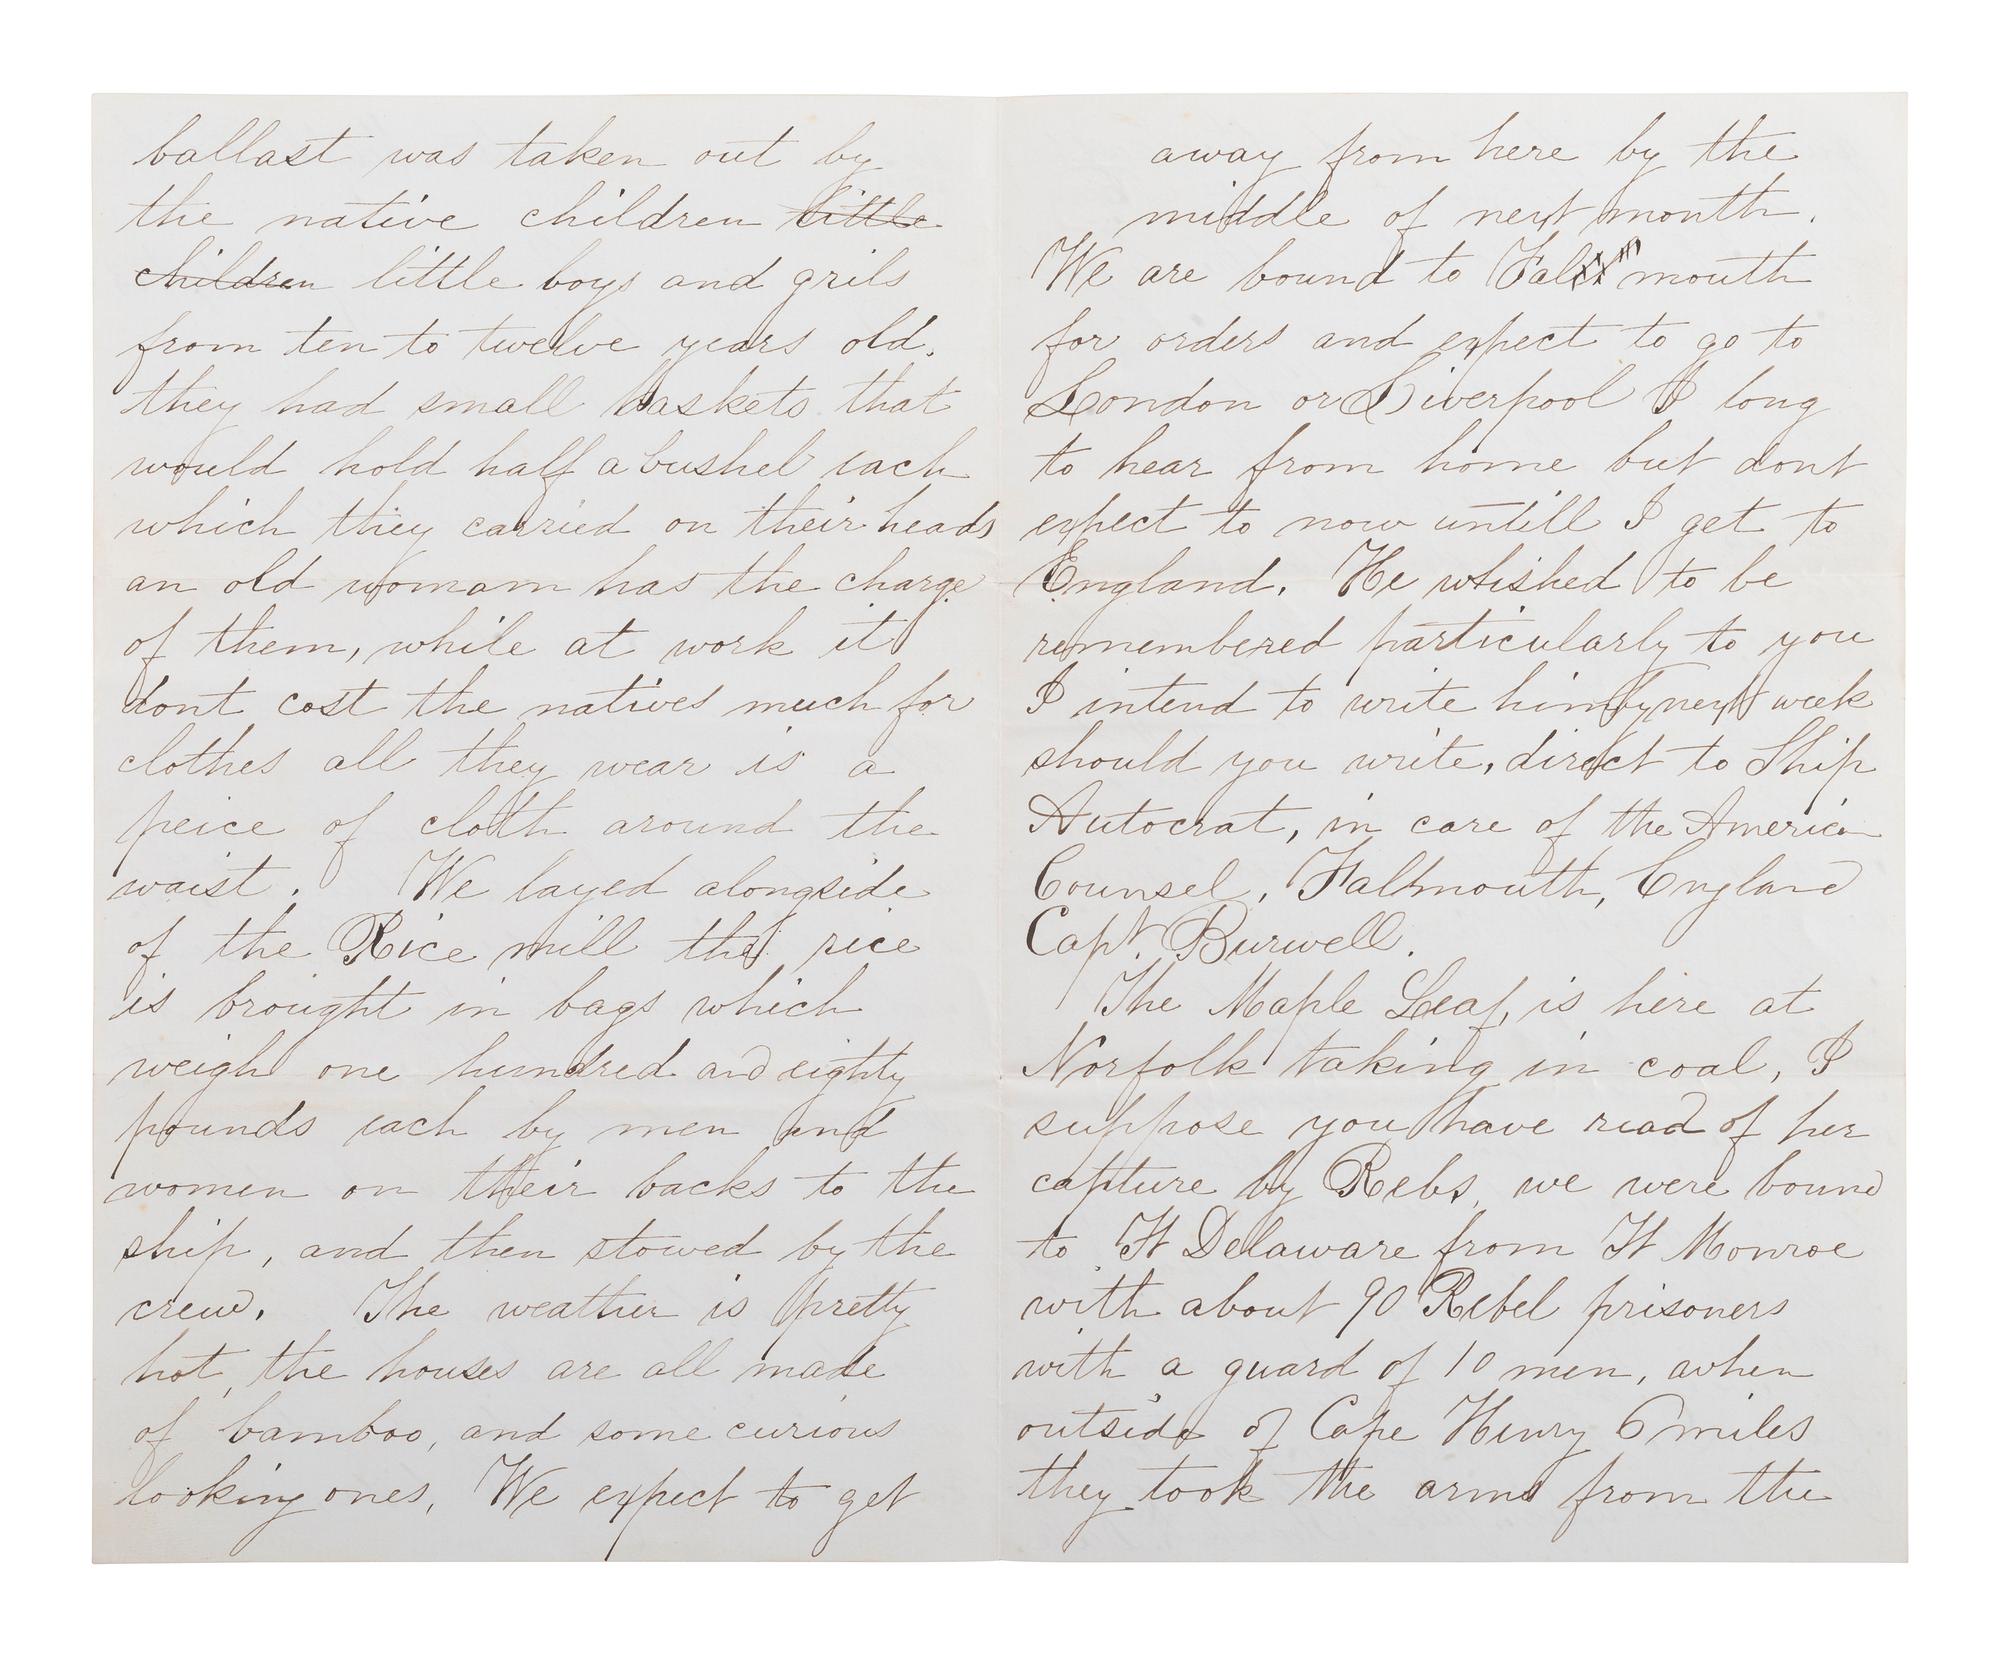 ballast was taken out by
the native children little
children little boys and grils
from ten to twelve years old.
they had small baskets that
would hold half a bushel each
which they carried on their heads
an old womam has the charge
of them, while at work it
dont cost the natives much for
clothes all they wear is a
peice of cloth around the
waist. We layed alongside
of the Rice mill the rice
is brought in bags which
weigh one hundred and eighty
pounds each by men and
women on their backs to the
ship, and then stowed by the
crew. The weather is pretty
hot, the houses are all made
of bamboo, and some curious
looking ones, We expect to get
away from here by the
middle of next month.
We are bound to Falmouth
for orders and expect to go to
London or Liverpool I long
to hear from home but dont
expect to now untill I get to
England. He whished to be
remembered particularly to you
I intend to write him by next week
should you write, direct to Ship
Autocrat, in care of the American
Counsel, Falmouth, England
Capt. Burwell.
The Maple Leaf, is here at
Norfolk taking in coal, I
suppose you have read of her
capture by Rebs, we were bound
to Ft Delaware from Ft Monroe
with about 90 Rebel prisoners
with a guard of 10 men, when
outside of Cape Henry 6 miles
they took the arms from the